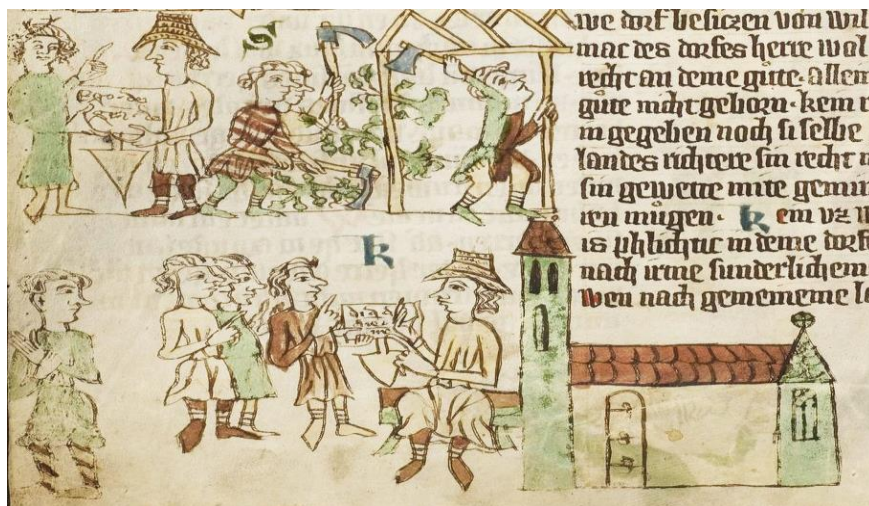 S
we dorf besiczen von wil
mac des dorfes herre wol
recht an deme gute. allem
gute nicht geborn. kem
in gegeben noch si selbe
landes richtere sin recht
sin gewette mite
ren mugen. kem vz w
is phlichtic in deme dorfe
nach irme sunderlichem
wen nach gemeineme
k